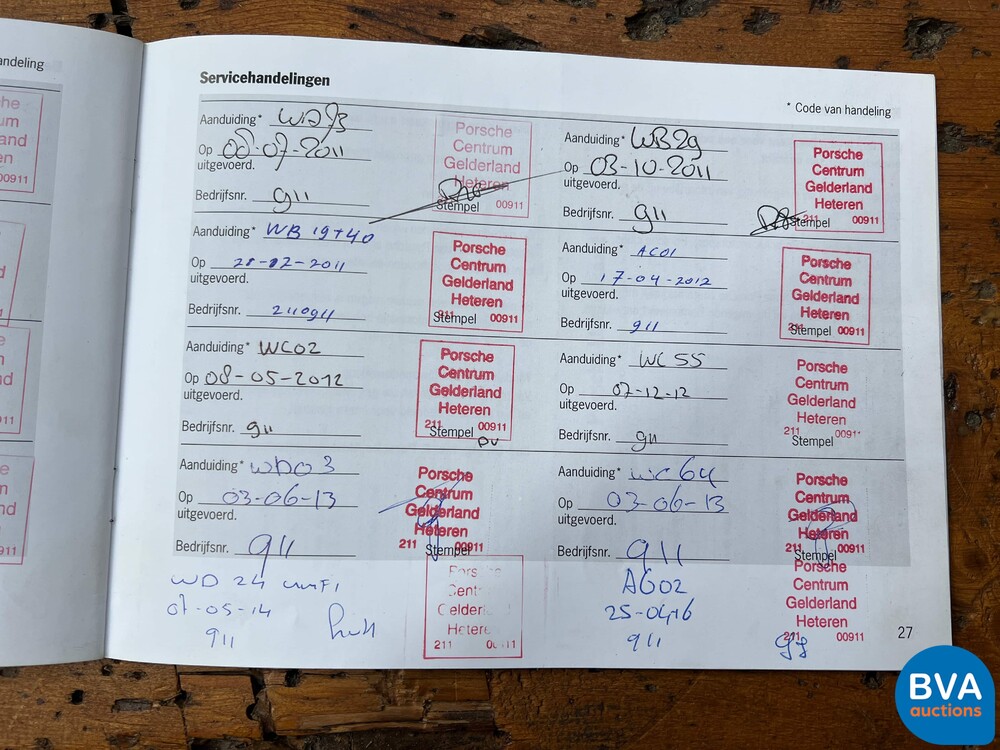 andeling
Servicehandelingen
* Code van handeling
Aanduiding*
Op 00-07-2011
uitgevoerd.
Bedrijfsnr. 911
Porsche
Centrum
Gelderland
Heteren
Stempel 00911
Aanduiding* WB29
Op 03-10-2011
uitgevoerd.
Bedrijfsnr. 911
Porsche
Centrum
Gelderland
Heteren
211 00911
Stempel
Aanduiding* WB 19+40
Op 28-02-2011
uitgevoerd.
Bedrijfsnr. 210911
Porsche
Centrum
Gelderland
Heteren
211 00911
Stempel
Aanduiding* AC01
Op 17-04-2012
uitgevoerd.
Bedrijfsnr. 911
Porsche
Centrum
Gelderland
Heteren
211 00911
Stempel
Aanduiding* WC02
Op 08-05-2012
uitgevoerd.
Bedrijfsnr. 911
Porsche
Centrum
Gelderland
Heteren
211 00911
Stempel
Aanduiding* WC55
Op 07-12-12
uitgevoerd.
Bedrijfsnr. 911
Porsche
Centrum
Gelderland
Heteren
211 0091
Stempel
Aanduiding* WD03
Op 03-06-13
uitgevoerd.
Bedrijfsnr. 911
Porsche
Centrum
Gelderland
Heteren
211 00911
Stempel
Aanduiding* WC64
Op 03-06-13
uitgevoerd.
Bedrijfsnr. 911
Porsche
Centrum
Gelderland
Heteren
211 00911
Stempel
WD 24
07-05-14
911
Pors
Cent
Gelder
Hetere
211
AG02
25-04-16
911
Porsche
Centrum
Gelderland
Heteren
211 00911
27
BVA
auctions